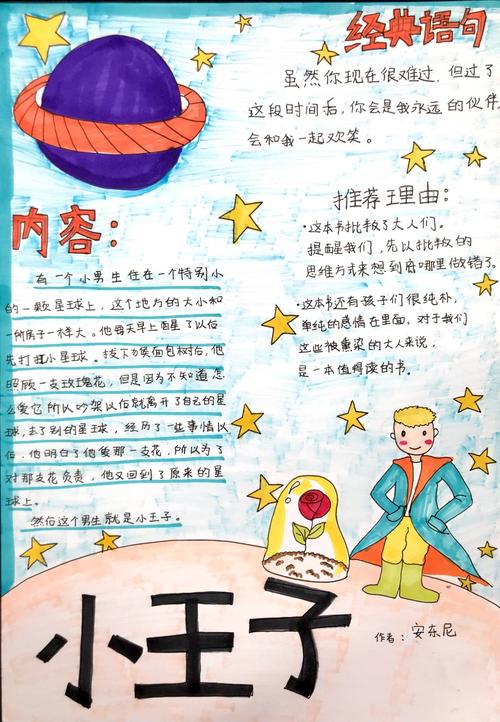 经典语句
虽然你现在很难过，但过了
这段时间后，你会是我永远的伙伴，
会和我一起欢笑。
推荐理由：
·这本书批判了大人们。
提醒我们，先以批判的
思维方式来想到底哪里做错了。
·这本书还有孩子们很纯朴，
单纯的感情在里面。对于我们
这些被熏染的大人来说，
是一本值得读的书。
内容：
有一个小男生住在一个特别小
的一颗星球上，这个地方的大小和
一所房子一样大。他每天早上面星了以后，
先打扫小星球。拔下方侯面包树后，他
照顾一支玫瑰花，但是因为不知道怎
么爱它所以吵架以后就离开了自己的星
球，去了别的星球，经历了一些事情以
后，他明白了他爱那一支花，所以为了
对那支花负责，他又回到了原来的星
球上。
然后这个男生就是小王子。
小王子
作者：安东尼